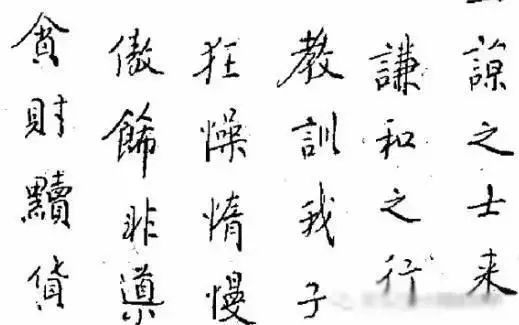 諒之士来
謙和之行
教訓我子
狂懆惰慢
傲飾非
貪財黷貨